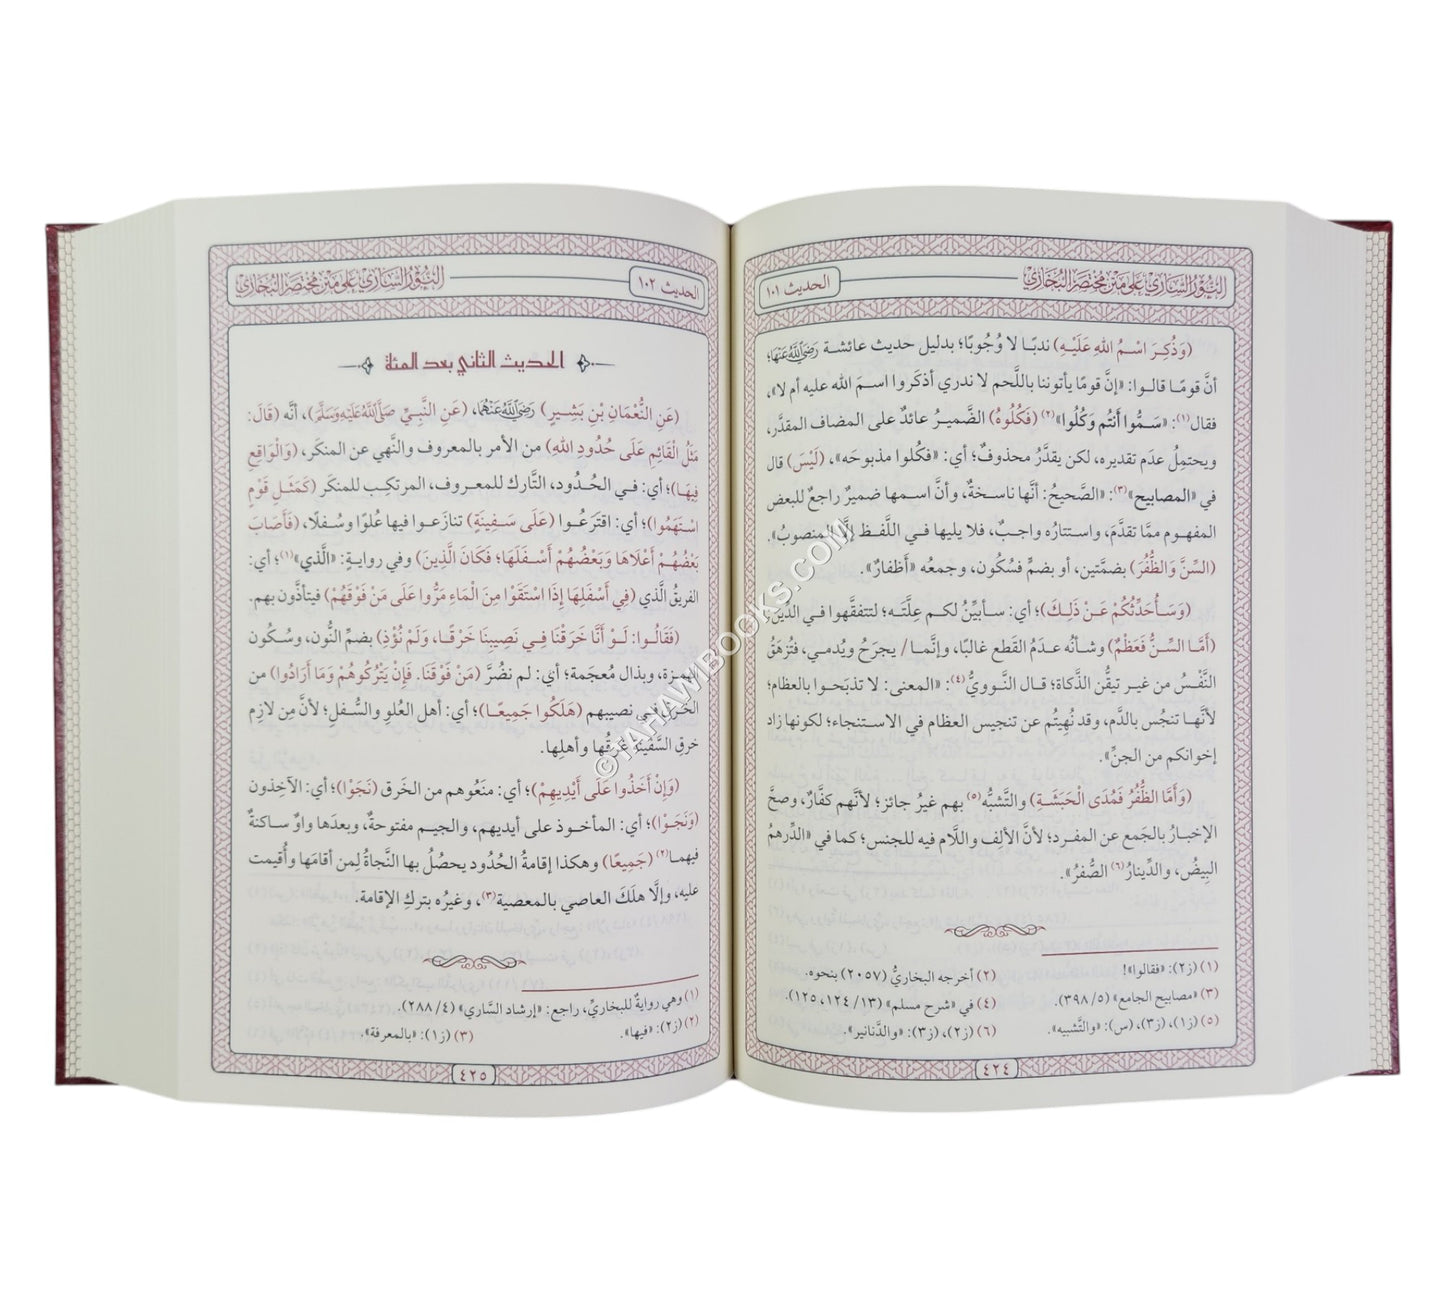 النور الساري على متن مختصر البخاري
الحديث ١٠١
(وَذُكِرَ اسْمُ اللهِ عَلَيْهِ) ندبًا لا وُجُوبًا؛ بدليل حديث عائشة رَضِيَ اللَّهُ عَنْهَا؛
أنَّ قومًا قالوا: «إنَّ قومًا يأتوننا باللَّحم لا ندري أذكَروا اسمَ الله عليه أم لا»،
فقال(١): «سَمُّوا أنتُم وَكُلُوا»(٢) (فَكُلُوهُ) الضَّميرُ عائدٌ على المضاف المقدَّر،
ويحتمِلُ عدَم تقديره، لكن يقدَّرُ محذوفٌ؛ أي: «فكُلوا مذبوحَه»، (لَيْسَ) قال
في «المصابيح»(٣): «الصَّحيحُ: أنَّها ناسخةٌ، وأنَّ اسمها ضميرٌ راجعٌ للبعض
المفهوم ممَّا تقدَّمَ، واستتارُه واجبٌ، فلا يليها في اللَّفظ إلَّا المنصوبُ».
(السِّنَّ وَالظُّفُرَ) بضمَّتين، أو بضمٍّ فسُكُون، وجمعُه «أظفارٌ».
(وَسَأُحَدِّثُكُمْ عَنْ ذَلِكَ)؛ أي: سأبيِّنُ لكم علَّتَه؛ لتتفقَّهوا في الدِّين،
(أَمَّا السِّنُّ فَعَظْمٌ) وشأنُه عدَمُ القَطع غالبًا، وإنَّما/ يجرَحُ ويُدمي، فتُزهَقُ
النَّفْسُ من غير تيقُّن الذَّكاة؛ قال النَّوويُّ(٤): «المعنى: لا تذبَحوا بالعظام؛
لأنَّها تنجُس بالدَّم، وقد نُهِيتُم عن تنجيس العظام في الاستنجاء؛ لكونها زاد
إخوانكم من الجنِّ».
(وَأَمَّا الظُّفُرُ فَمُدَى الْحَبَشَةِ) والتَّشبُّه(٥) بهم غيرُ جائز؛ لأنَّهم كفَّارٌ، وصحَّ
الإخبارُ بالجَمع عن المفرد؛ لأنَّ الألِف واللَّام فيه للجنس؛ كما في «الدِّرهمُ
البِيضُ، والدِّينارُ(٦) الصُّفرُ».
(١) (ز٢): «فقالوا»!
(٢) أخرجه البخاريُّ (٢٠٥٧) بنحوه.
(٣) «مصابيح الجامع» (٣٩٨/٥).
(٤) في «شرح مسلم» (١٢٤/١٣، ١٢٥).
(٥) (ز١)، (ز٣)، (س): «والتَّشبيه».
(٦) (ز٢)، (ز٣): «والدَّنانير».
٤٢٤
النور الساري على متن مختصر البخاري
الحديث ١٠٢
الحديث الثاني بعد المئة
(عَنِ النُّعْمَانِ بْنِ بَشِيرٍ) رَضِيَ اللَّهُ عَنْهُمَا، (عَنِ النَّبِيِّ صَلَّى اللَّهُ عَلَيْهِ وَسَلَّمَ)، أنَّه (قَالَ:
مَثَلُ الْقَائِمِ عَلَى حُدُودِ اللهِ) من الأمر بالمعروف والنَّهي عن المنكَر، (وَالْوَاقِعِ
فِيهَا)؛ أي: في الحُدُود، التَّارك للمعروف، المرتكِب للمنكَر (كَمَثَلِ قَوْمٍ
اسْتَهَمُوا)؛ أي: اقترَعُوا (عَلَى سَفِينَةٍ) تنازَعوا فيها عُلوًا وسُفلًا، (فَأَصَابَ
بَعْضُهُمْ أَعْلَاهَا وَبَعْضُهُمْ أَسْفَلَهَا؛ فَكَانَ الَّذِينَ) وفي روايةٍ: «الَّذي»(١)؛ أي:
الفريقُ الَّذي (فِي أَسْفَلِهَا إِذَا اسْتَقَوْا مِنَ الْمَاءِ مَرُّوا عَلَى مَنْ فَوْقَهُمْ) فيتأذَّون بهم.
(فَقَالُوا: لَوْ أَنَّا خَرَقْنَا فِي نَصِيبِنَا خَرْقًا، وَلَمْ نُؤْذِ) بضمِّ النُّون، وسُكُون
الهمزة، وبذال مُعجَمة؛ أي: لم نضُرَّ (مَنْ فَوْقَنَا. فَإِنْ يَتْرُكُوهُمْ وَمَا أَرَادُوا) من
الخَرق في نصيبهم (هَلَكُوا جَمِيعًا)؛ أي: أهل العُلوِ والسُّفلِ؛ لأنَّ مِن لازِم
خرقِ السَّفينة غَرَقُها وأهلِها.
(وَإِنْ أَخَذُوا عَلَى أَيْدِيهِمْ)؛ أي: منَعُوهم من الخَرق (نَجَوْا)؛ أي: الآخِذون
(وَنَجَوْا)؛ أي: المأخوذ على أيديهم، والجيم مفتوحةٌ، وبعدَها واوٌ ساكنةٌ
فيهما(٢) (جَمِيعًا) وهكذا إقامةُ الحُدُود يحصُلُ بها النَّجاةُ لِمن أقامَها وأُقيمت
عليه، وإلَّا هلَكَ العاصي بالمعصية(٣)، وغيرُه بتركِ الإقامة.
(١) وهي روايةٌ للبخاريِّ، راجع: «إرشاد السَّاري» (٢٨٨/٤).
(٢) (ز٢): «فيها».
(٣) (ز١): «بالمعرفة».
٤٢٥
©TAHAWIBOOKS.COM